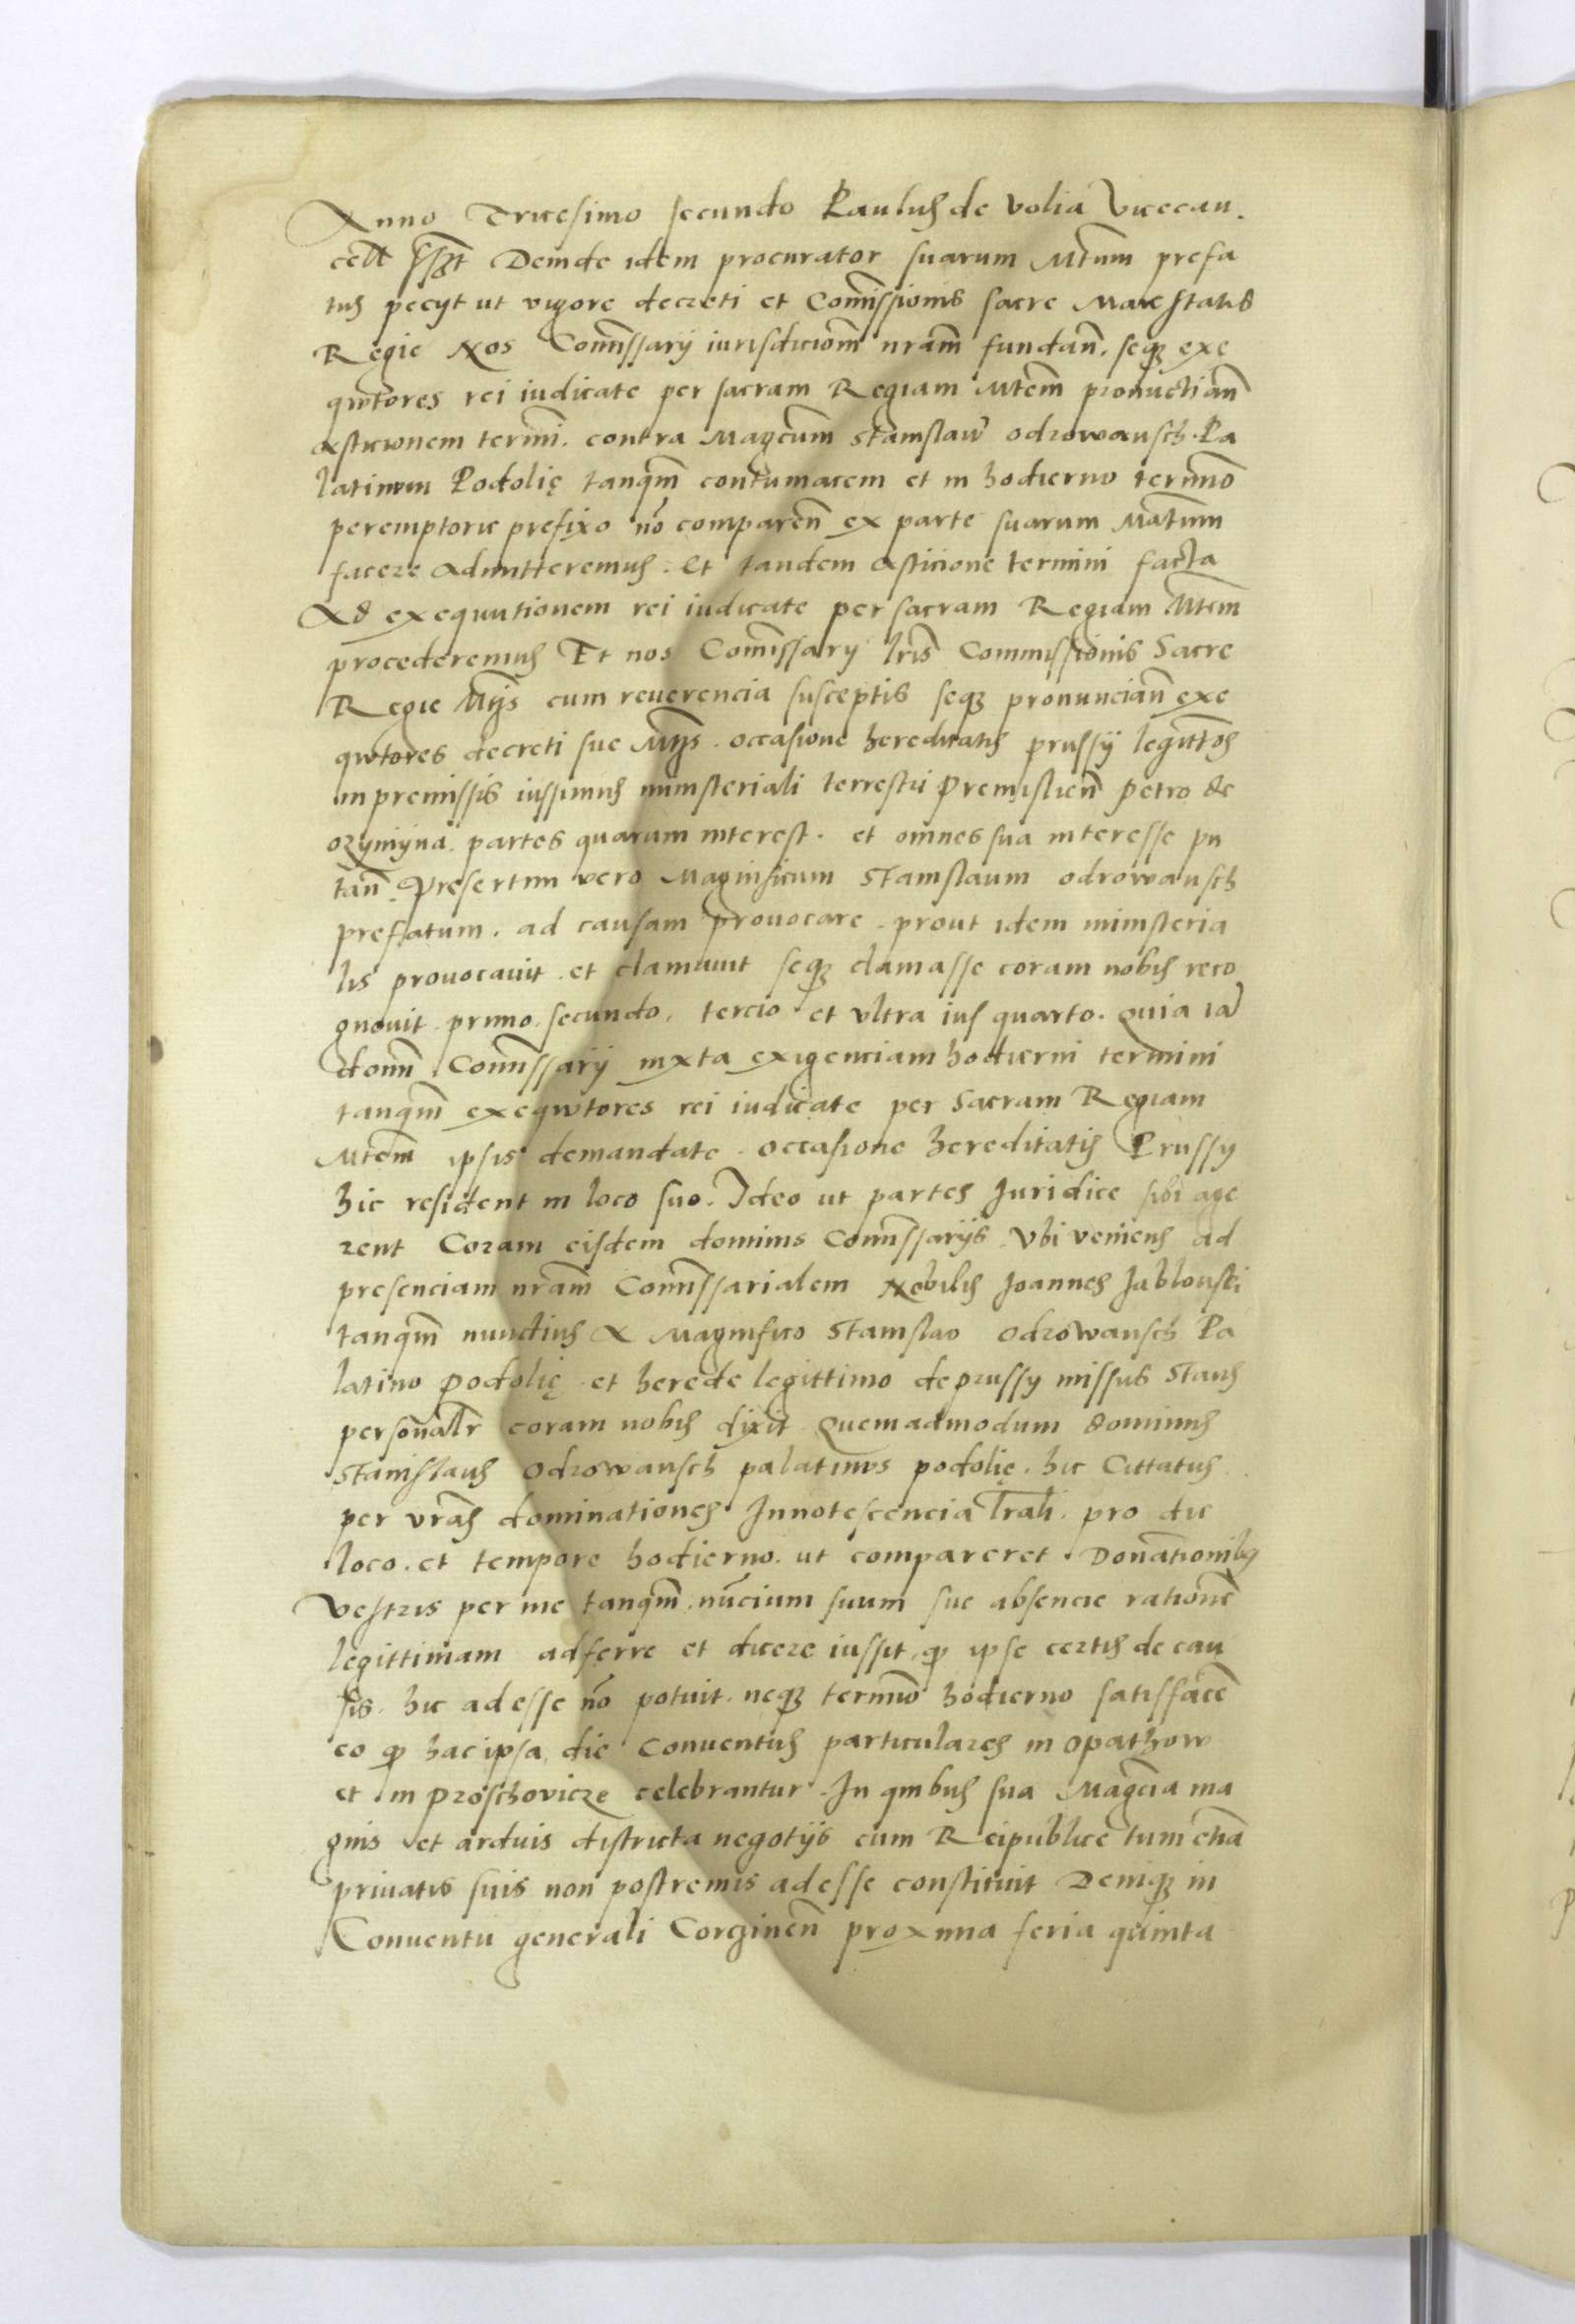 Anno Tricesimo secundo Paulus de Volia Vicecan.
cell sszt Deinde idem procurator suarum Mtum prefa
tus pecyt ut vigore decreti et Comissionis sacre Maiestatis
Regie Nos Comissarij iurisdiciom nram fundan. seq3 exe
qutores rei iudicate per sacram Regiam Mtem pronuctian
asticionem termi. contra Magcum Stanislaw odrowansch. Pa
latinum Podolię tanqm contumacem et in hodierno termino
peremptorie prefixo no comparen ex parte suarum Matum
facere admitteremus. Et tandem asticione termini facta
Ad exequutionem rei iudicate per sacram Regiam Mtem
procederemus Et nos Comissary lris Commissionis Sacre
Regie Mtjs cum reuerencia susceptis seq3 pronuncian exe
qutores decreti sue Mtjs. occasione hereditatis prussij legittos
in premissis iussimus ministeriali terrestri Premislien Petro de
ozymyna. partes quarum interest. et omnes sua interesse pu
tan. Presertim vero Magnificum Stanislaum odrowansch
prefatum. ad causam prouocare. prout idem ministeria
lis prouocauit. et clamauit seq3 clamasse coram nobis reco
gnouit. primo. secundo. tercio. et vltra ius quarto. quia ia
domi Comissarij iuxta exigenciam hodierni termini
tanqm exeqwtores rei iudicate per Sacram Regiam
Mtem ipsis demandate. occasione hereditatis Prussy
hic resident in loco suo. Ideo ut partes Juridice sibi age
rent Coram eisdem dominis Comissarijs. Vbi veniens ad
presenciam nram Comissarialem Nobilis Joannes Jablonski
tanqm nunctius A Magnifico Stanislao Odrowansch Pa
latino podolię. et herede legittimo de prussy missus Stans
personalr coram nobis dixit Quemadmodum dominus
Stanislaus Odrowansch palatinus podolię. hic Cittatus
per vras dominationes Innotescencia lrali. pro die
loco. et tempore hodierno. ut compareret. Donationibus
Vestris per me tanqm nucium suum sue absencie ratione
legittimam adferre et dicere iussit. q ipse certis de cau
sis. hic adesse no potuit. neq3 termio hodierno satisface
eo q hac ipsa die Conuentus particulares in opathow
et in proschovicze celebrantur. In quibus sua Magcia ma
gnis et arduis districta negotijs cum Reipublice tum etia
priuatis suis non postremis adesse constituit Deniq3 in
Conuentu generali Corzinen proxima feria quinta